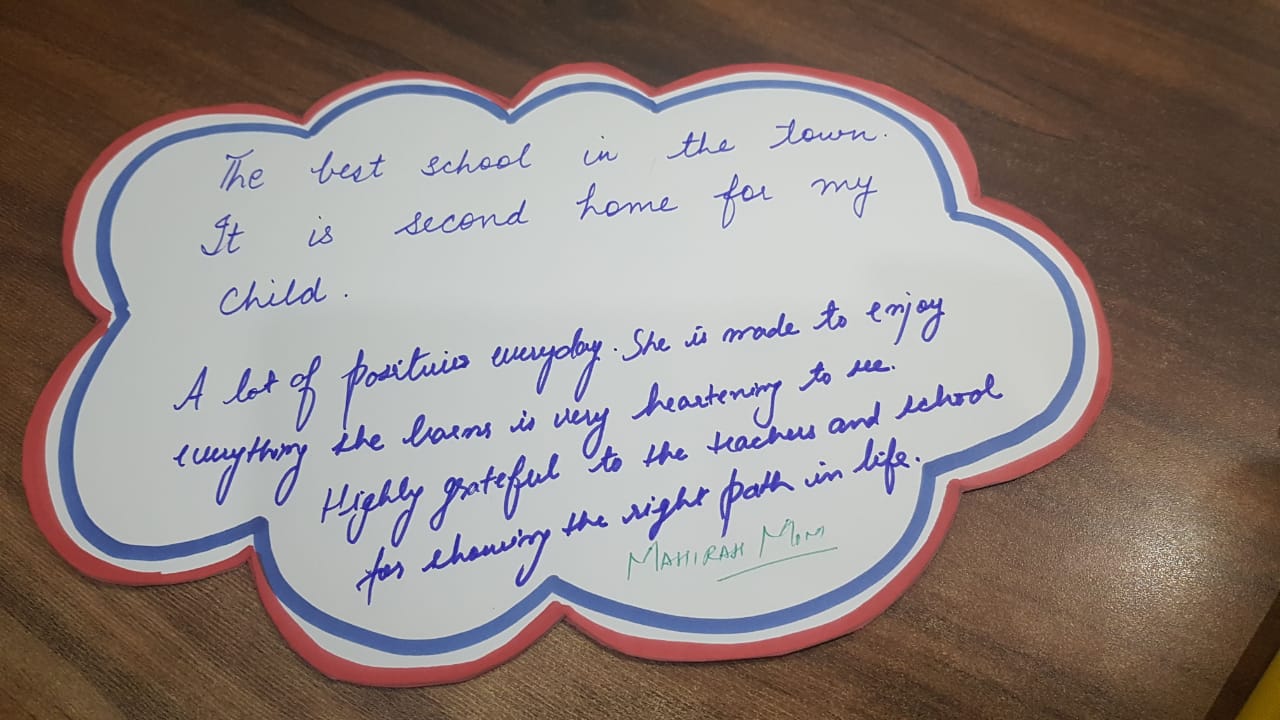 The best school in the town.
It is second home for my
child.
A lot of positives everyday. She is made to enjoy
everything she learns is very heartening to see.
Highly grateful to the teachers and school
for showing the right path in life.
MAHIRAH MOM